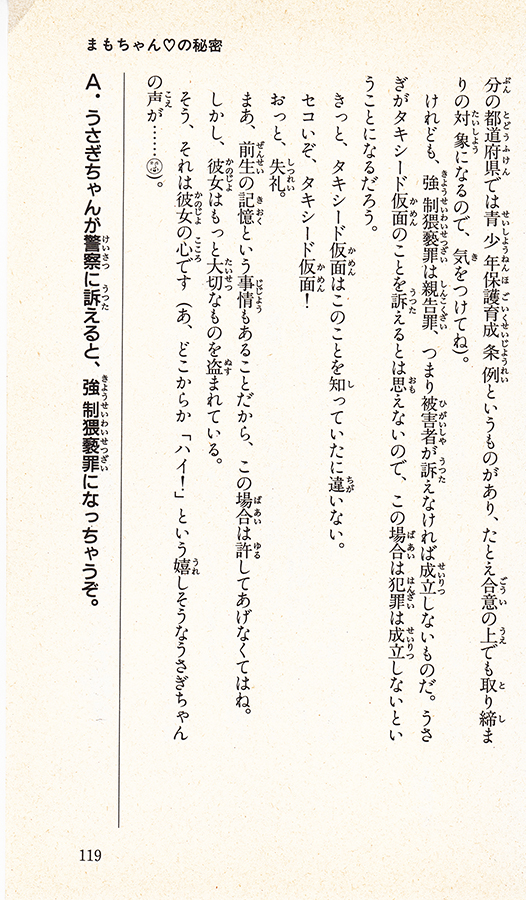 まもちゃん♡の秘密
分の都道府県では青少年保護育成条例というものがあり、たとえ合意の上でも取り締ま
りの対象になるので、気をつけてね)。
けれども、強制猥褻罪は親告罪、つまり被害者が訴えなければ成立しないものだ。うさ
ぎがタキシード仮面のことを訴えるとは思えないので、この場合は犯罪は成立しないとい
うことになるだろう。
きっと、タキシード仮面はこのことを知っていたに違いない。
セコいぞ、タキシード仮面!
おっと、失礼。
まあ、前生の記憶という事情もあることだから、この場合は許してあげなくてはね。
しかし、彼女はもっと大切なものを盗まれている。
そう、それは彼女の心です(あ、どこからか「ハイ!」という嬉しそうなうさぎちゃん
の声が……)。
A.うさぎちゃんが警察に訴えると、強制猥褻罪になっちゃうぞ。
119